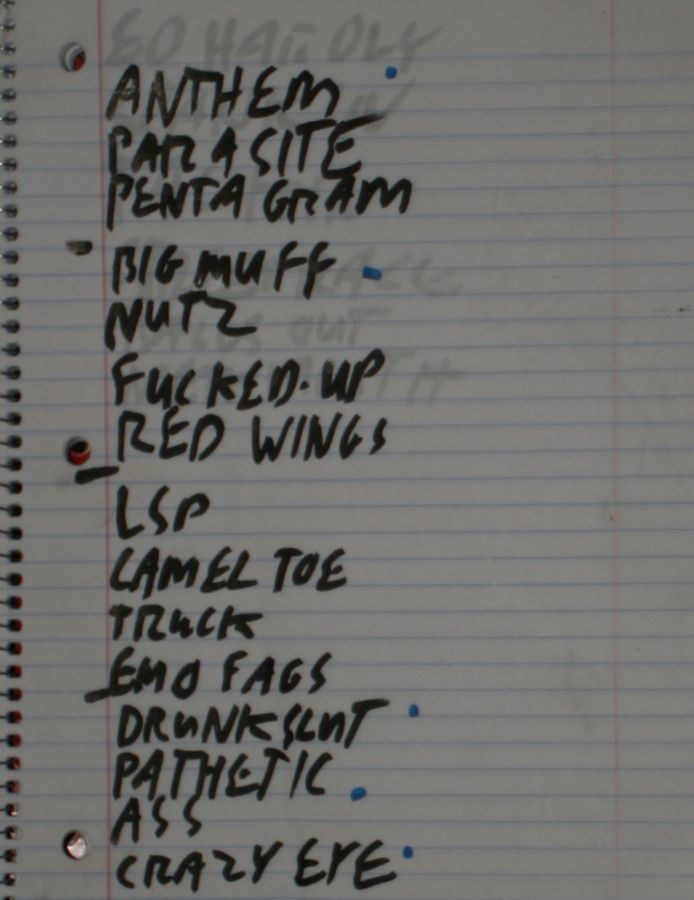 ANTHEM
PARASITE
PENTAGRAM
BIG MUFF
NUTZ
FUCKED-UP
RED WINGS
LSP
CAMEL TOE
TRUCK
EMO FAGS
DRUNK SLUT
PATHETIC
ASS
CRAZY EYE